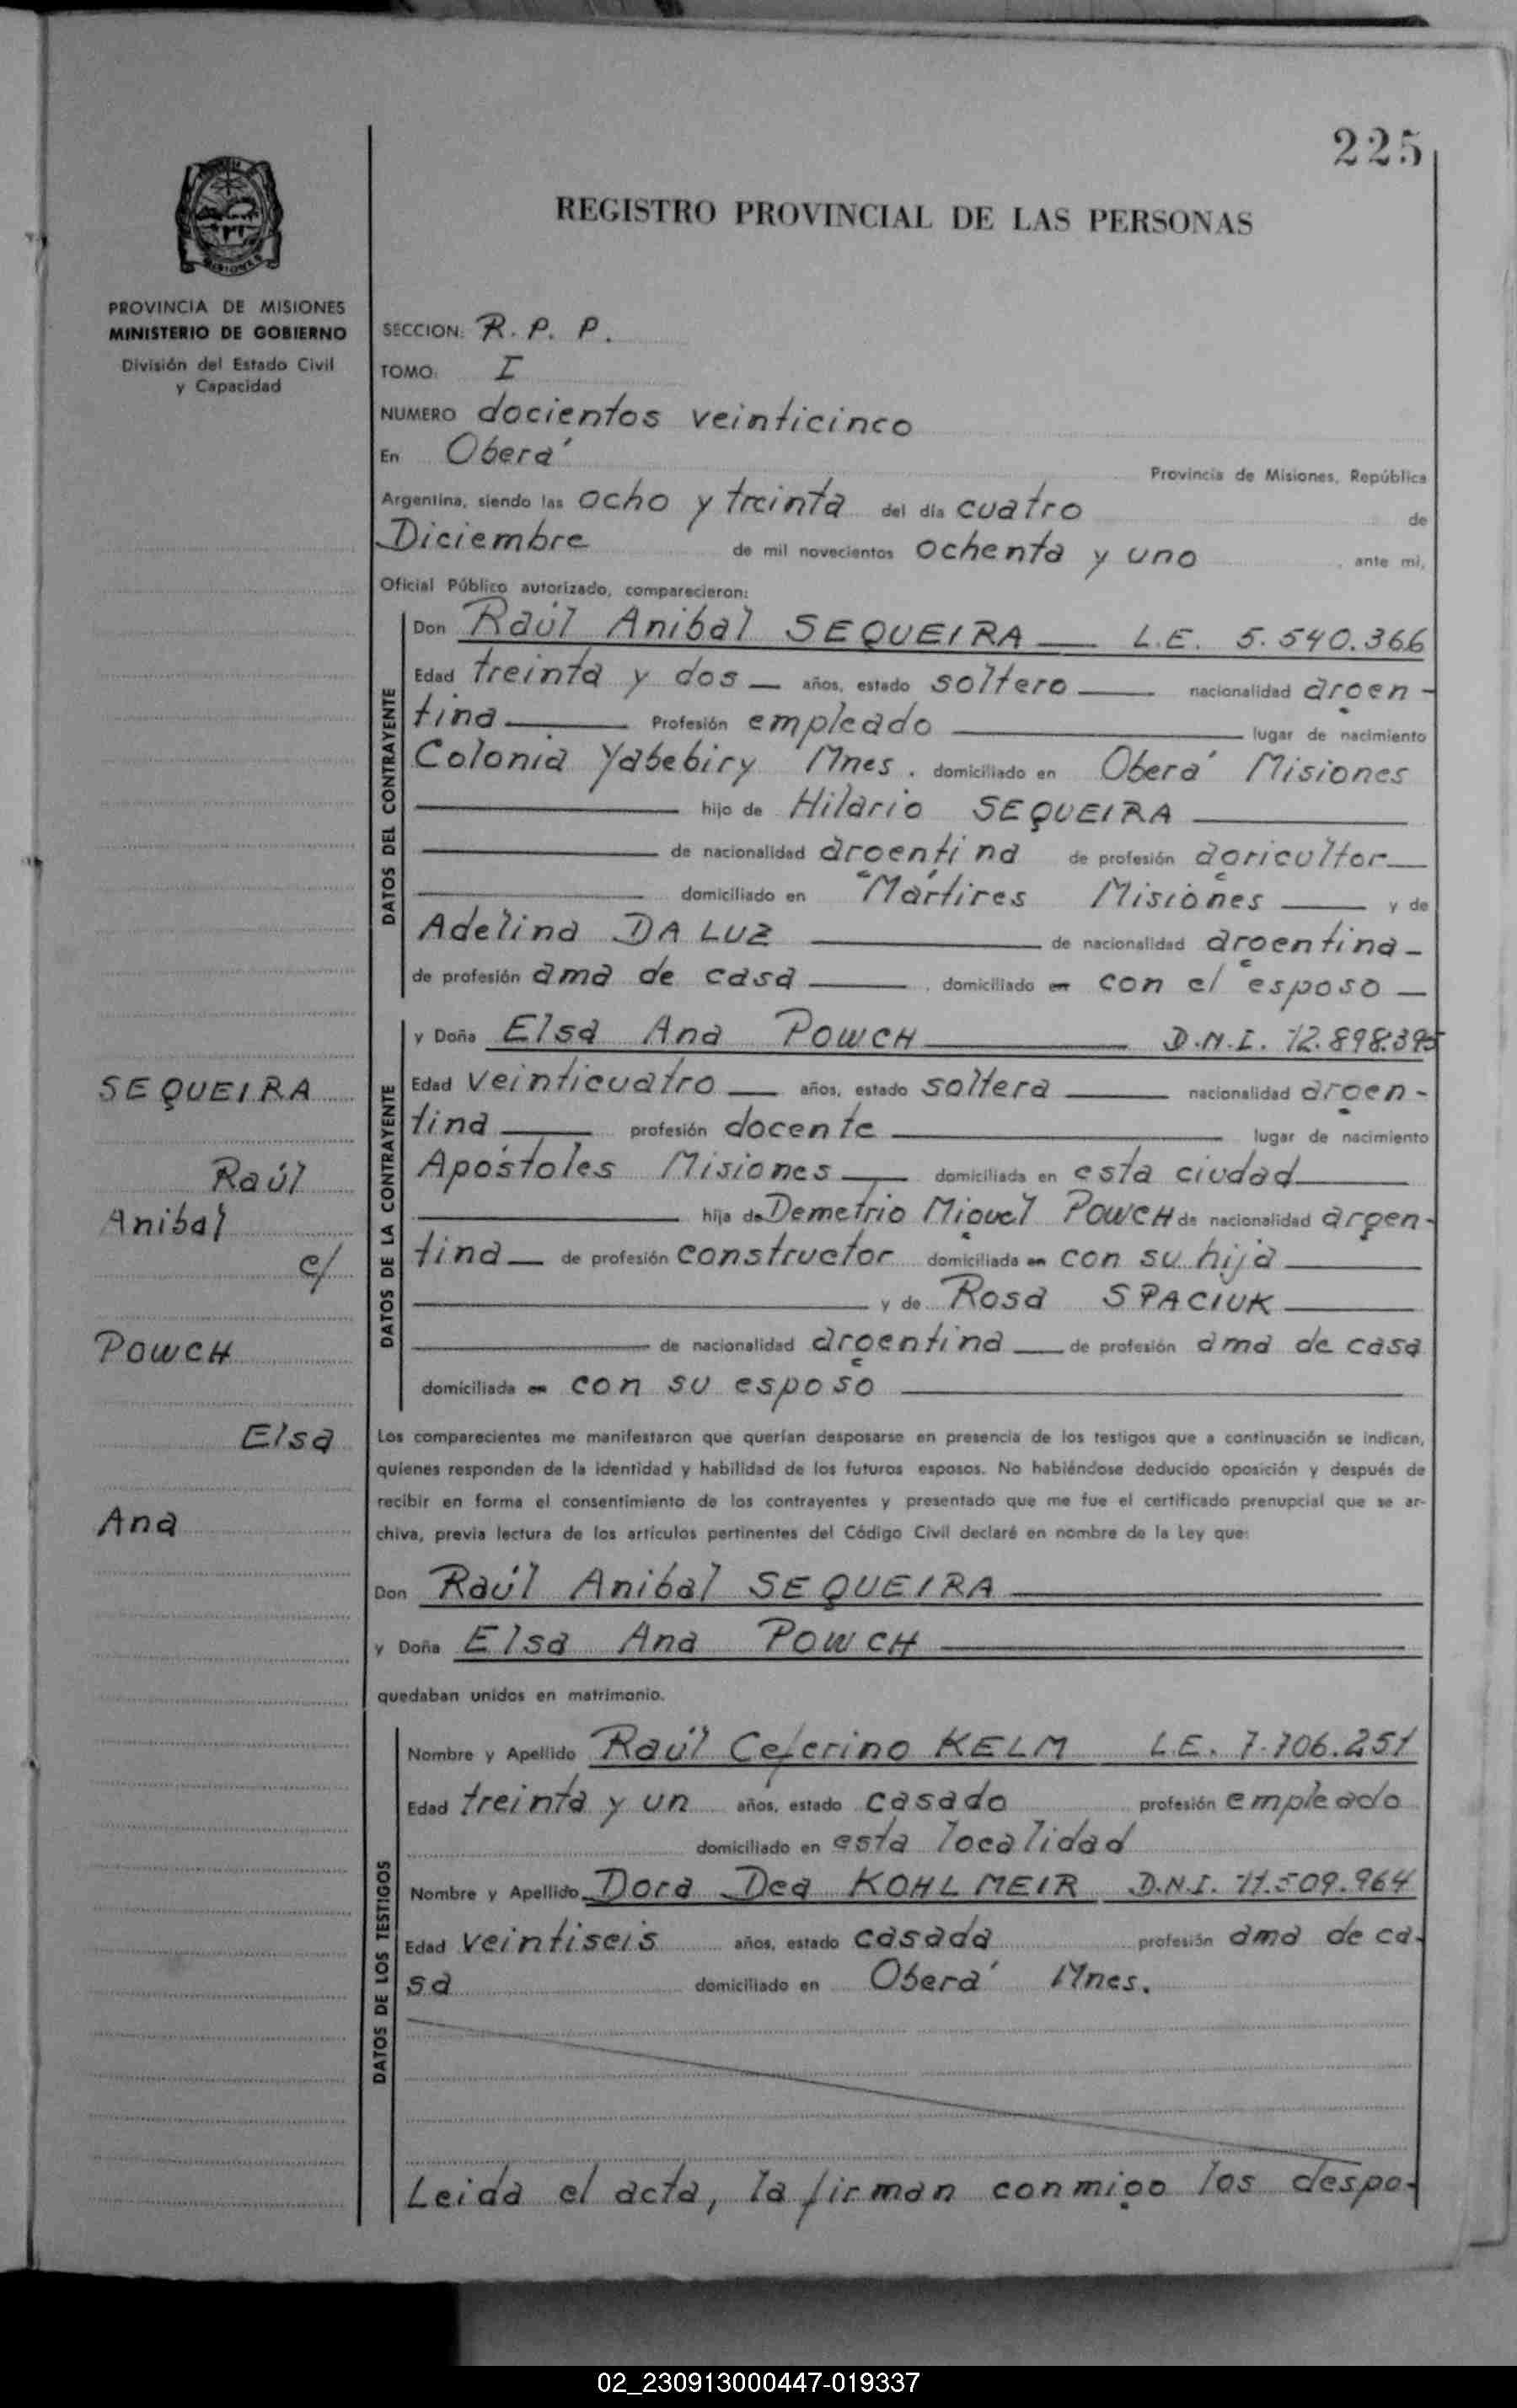 225
REGISTRO PROVINCIAL DE LAS PERSONAS
PROVINCIA DE MISIONES
MINISTERIO DE GOBIERNO
División del Estado Civil
y Capacidad
SECCION: R. P. P.
TOMO: I
NUMERO docientos veinticinco
En Oberá
Provincia de Misiones, República
Argentina, siendo las ocho y treinta del día cuatro de
Diciembre de mil novecientos ochenta y uno, ante mi,
Oficial Público autorizado, comparecieron:
DATOS DEL CONTRAYENTE
Don Raúl Anibal SEQUEIRA L.E. 5.540.366
Edad treinta y dos años, estado soltero nacionalidad argen-
tina Profesión empleado lugar de nacimiento
Colonia Yabebiry Mnes. domiciliado en Oberá Misiones
hijo de Hilario SEQUEIRA
de nacionalidad argentina de profesión agricultor
domiciliado en Mártires Misiones y de
Adelina DA LUZ de nacionalidad argentina-
de profesión ama de casa, domiciliado en con el esposo
DATOS DE LA CONTRAYENTE
y Doña Elsa Ana POWCH D.N.I. 12.898.395
Edad veinticuatro años, estado soltera nacionalidad argen-
tina profesión docente lugar de nacimiento
Apóstoles Misiones domiciliada en esta ciudad
hija de Demetrio Miguel POWCH de nacionalidad argen-
tina de profesión constructor domiciliada en con su hija
y de Rosa SPACIUK
de nacionalidad argentina de profesión ama de casa
domiciliada en con su esposo
SEQUEIRA
Raúl
Anibal
c/
POWCH
Elsa
Ana
Los comparecientes me manifestaron que querían desposarse en presencia de los testigos que a continuación se indican,
quienes responden de la identidad y habilidad de los futuros esposos. No habiéndose deducido oposición y después de
recibir en forma el consentimiento de los contrayentes y presentado que me fue el certificado prenupcial que se ar-
chiva, previa lectura de los artículos pertinentes del Código Civil declaré en nombre de la Ley que:
Don Raúl Anibal SEQUEIRA
y Doña Elsa Ana POWCH
quedaban unidos en matrimonio.
DATOS DE LOS TESTIGOS
Nombre y Apellido Raúl Ceferino KELM L.E. 7.706.251
Edad treinta y un años, estado casado profesión empleado
domiciliado en esta localidad
Nombre y Apellido Dora Dea KOHLMEIR D.N.I. 11.509.964
Edad veintiseis años, estado casada profesión ama de ca-
sa domiciliado en Oberá Mnes.
Leida el acta, la firman conmigo los despo-
02_230913000447-019337